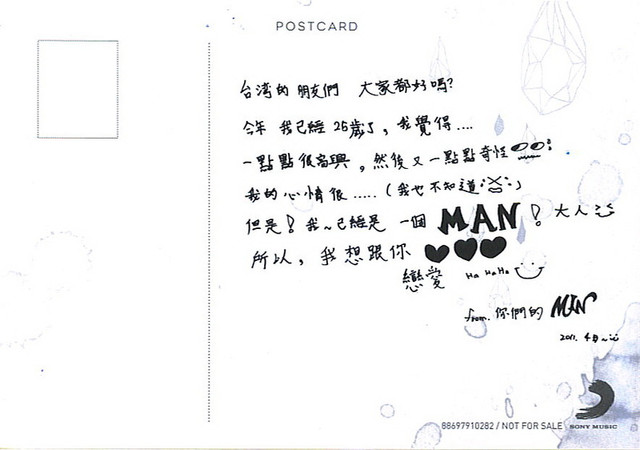 POSTCARD
台湾的 朋友們 大家都好嗎?
今年 我已經 25歲了, 我覺得....
一點點很高興, 然後又一點點奇怪
我的心情很.....(我也不知道)
但是! 我~已經是 一個 MAN! 大人
所以, 我想跟你 ♥♥♥
戀愛 Ha HaHa
from. 你們的 MAN
2011. 4月~
88697910282 / NOT FOR SALE SONY MUSIC